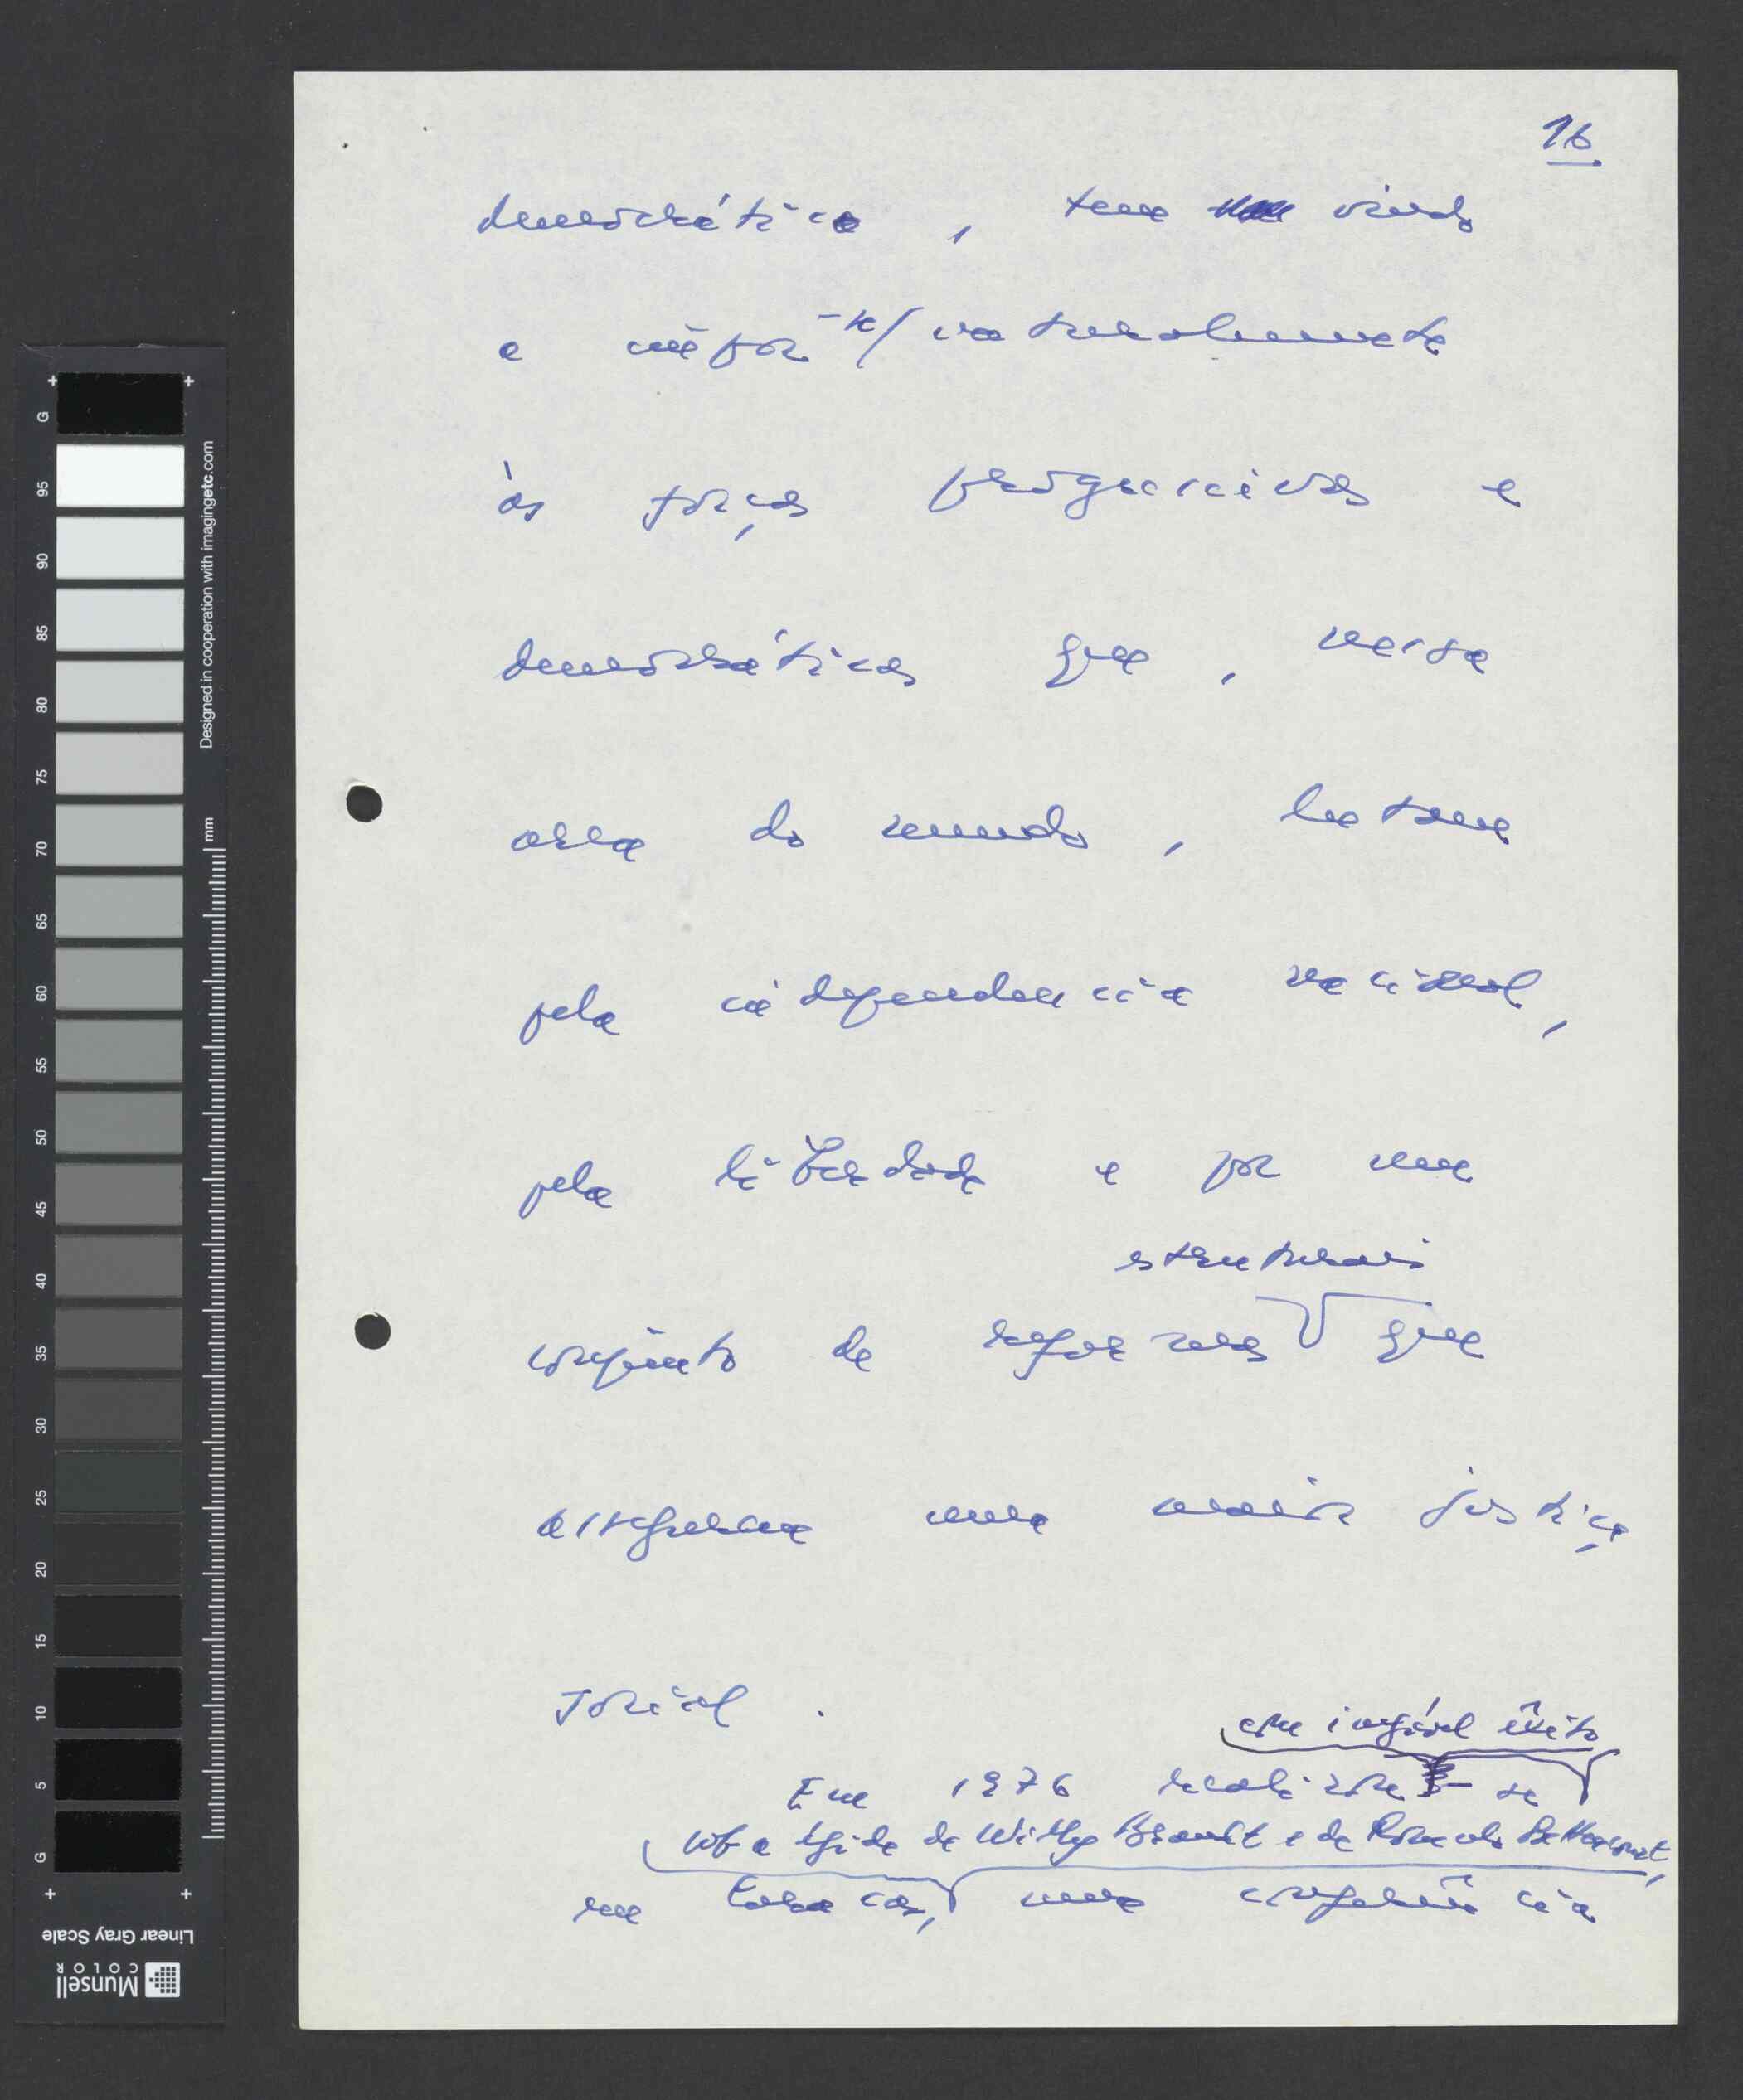 16
democrática, tem vindo
a impor-se/ naturalmente
às forças progressivas e
democráticas que, nessa
área do mundo, lutam
pela independencia nacional,
pela liberdade e por um
estruturais
conjunto de reformas que
assegurem uma maior justiça
social.
com inegável êxito
Em 1976 realizou-se
sob a égide de Willy Brandt e de Romulo Bettencourt,
em Caracas, uma conferência
G
95
90
85
80
75
70
65
60
55
50
45
40
35
30
25
20
15
10
5
G
Designed in cooperation with imagingetc.com
mm
Linear Gray Scale
Munsell
COLOR